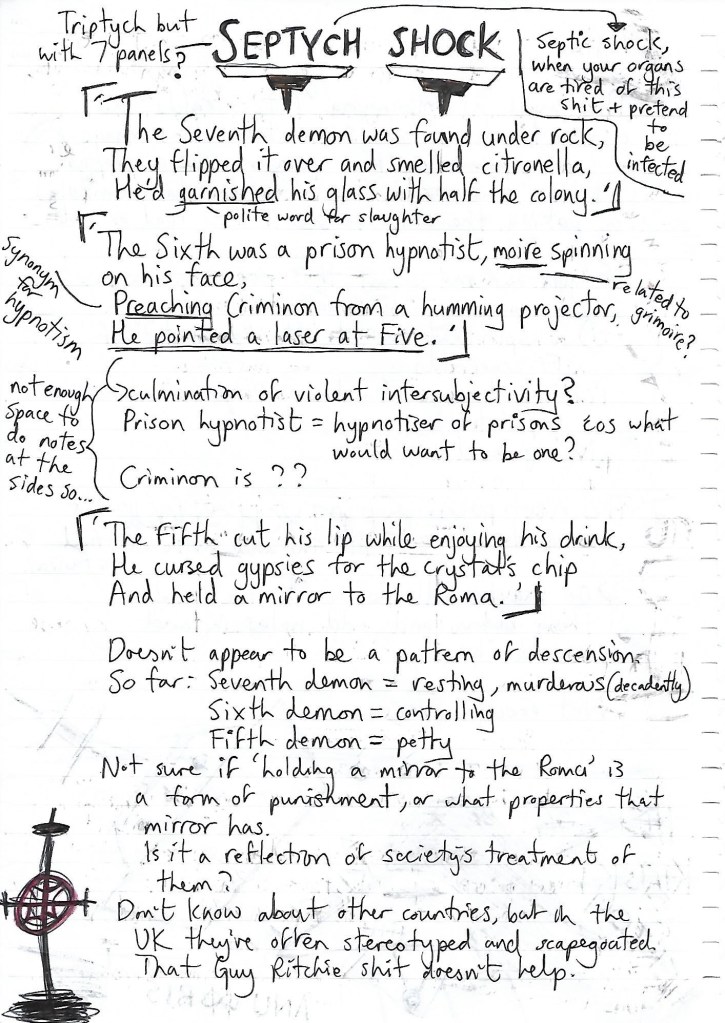 Triptych but
with 7 panels?
SEPTYCH SHOCK
Septic shock,
when your organs
are tired of this
shit + pretend
to
be
infected
'The Seventh demon was found under rock,
They flipped it over and smelled citronella,
He'd garnished his glass with half the colony.'
polite word for slaughter
'The Sixth was a prison hypnotist, moire spinning
on his face,
Preaching Criminon from a humming projector,
He pointed a laser at Five.'
Synonym
for
hypnotism
related to
grimoire?
not enough
space to
do notes
at the
sides so...
culmination of violent intersubjectivity?
Prison hypnotist = hypnotiser of prisons cos what
would want to be one?
Criminon is ??
'The Fifth cut his lip while enjoying his drink,
He cursed gypsies for the crystal's chip
And held a mirror to the Roma.'
Doesn't appear to be a pattern of descension.
So far: Seventh demon = resting, murderous (decadently)
Sixth demon = controlling
Fifth demon = petty
Not sure if 'holding a mirror to the Roma' is
a form of punishment, or what properties that
mirror has.
Is it a reflection of society's treatment of
them?
Don't know about other countries, but in the
UK they're often stereotyped and scapegoated.
That Guy Ritchie shit doesn't help.